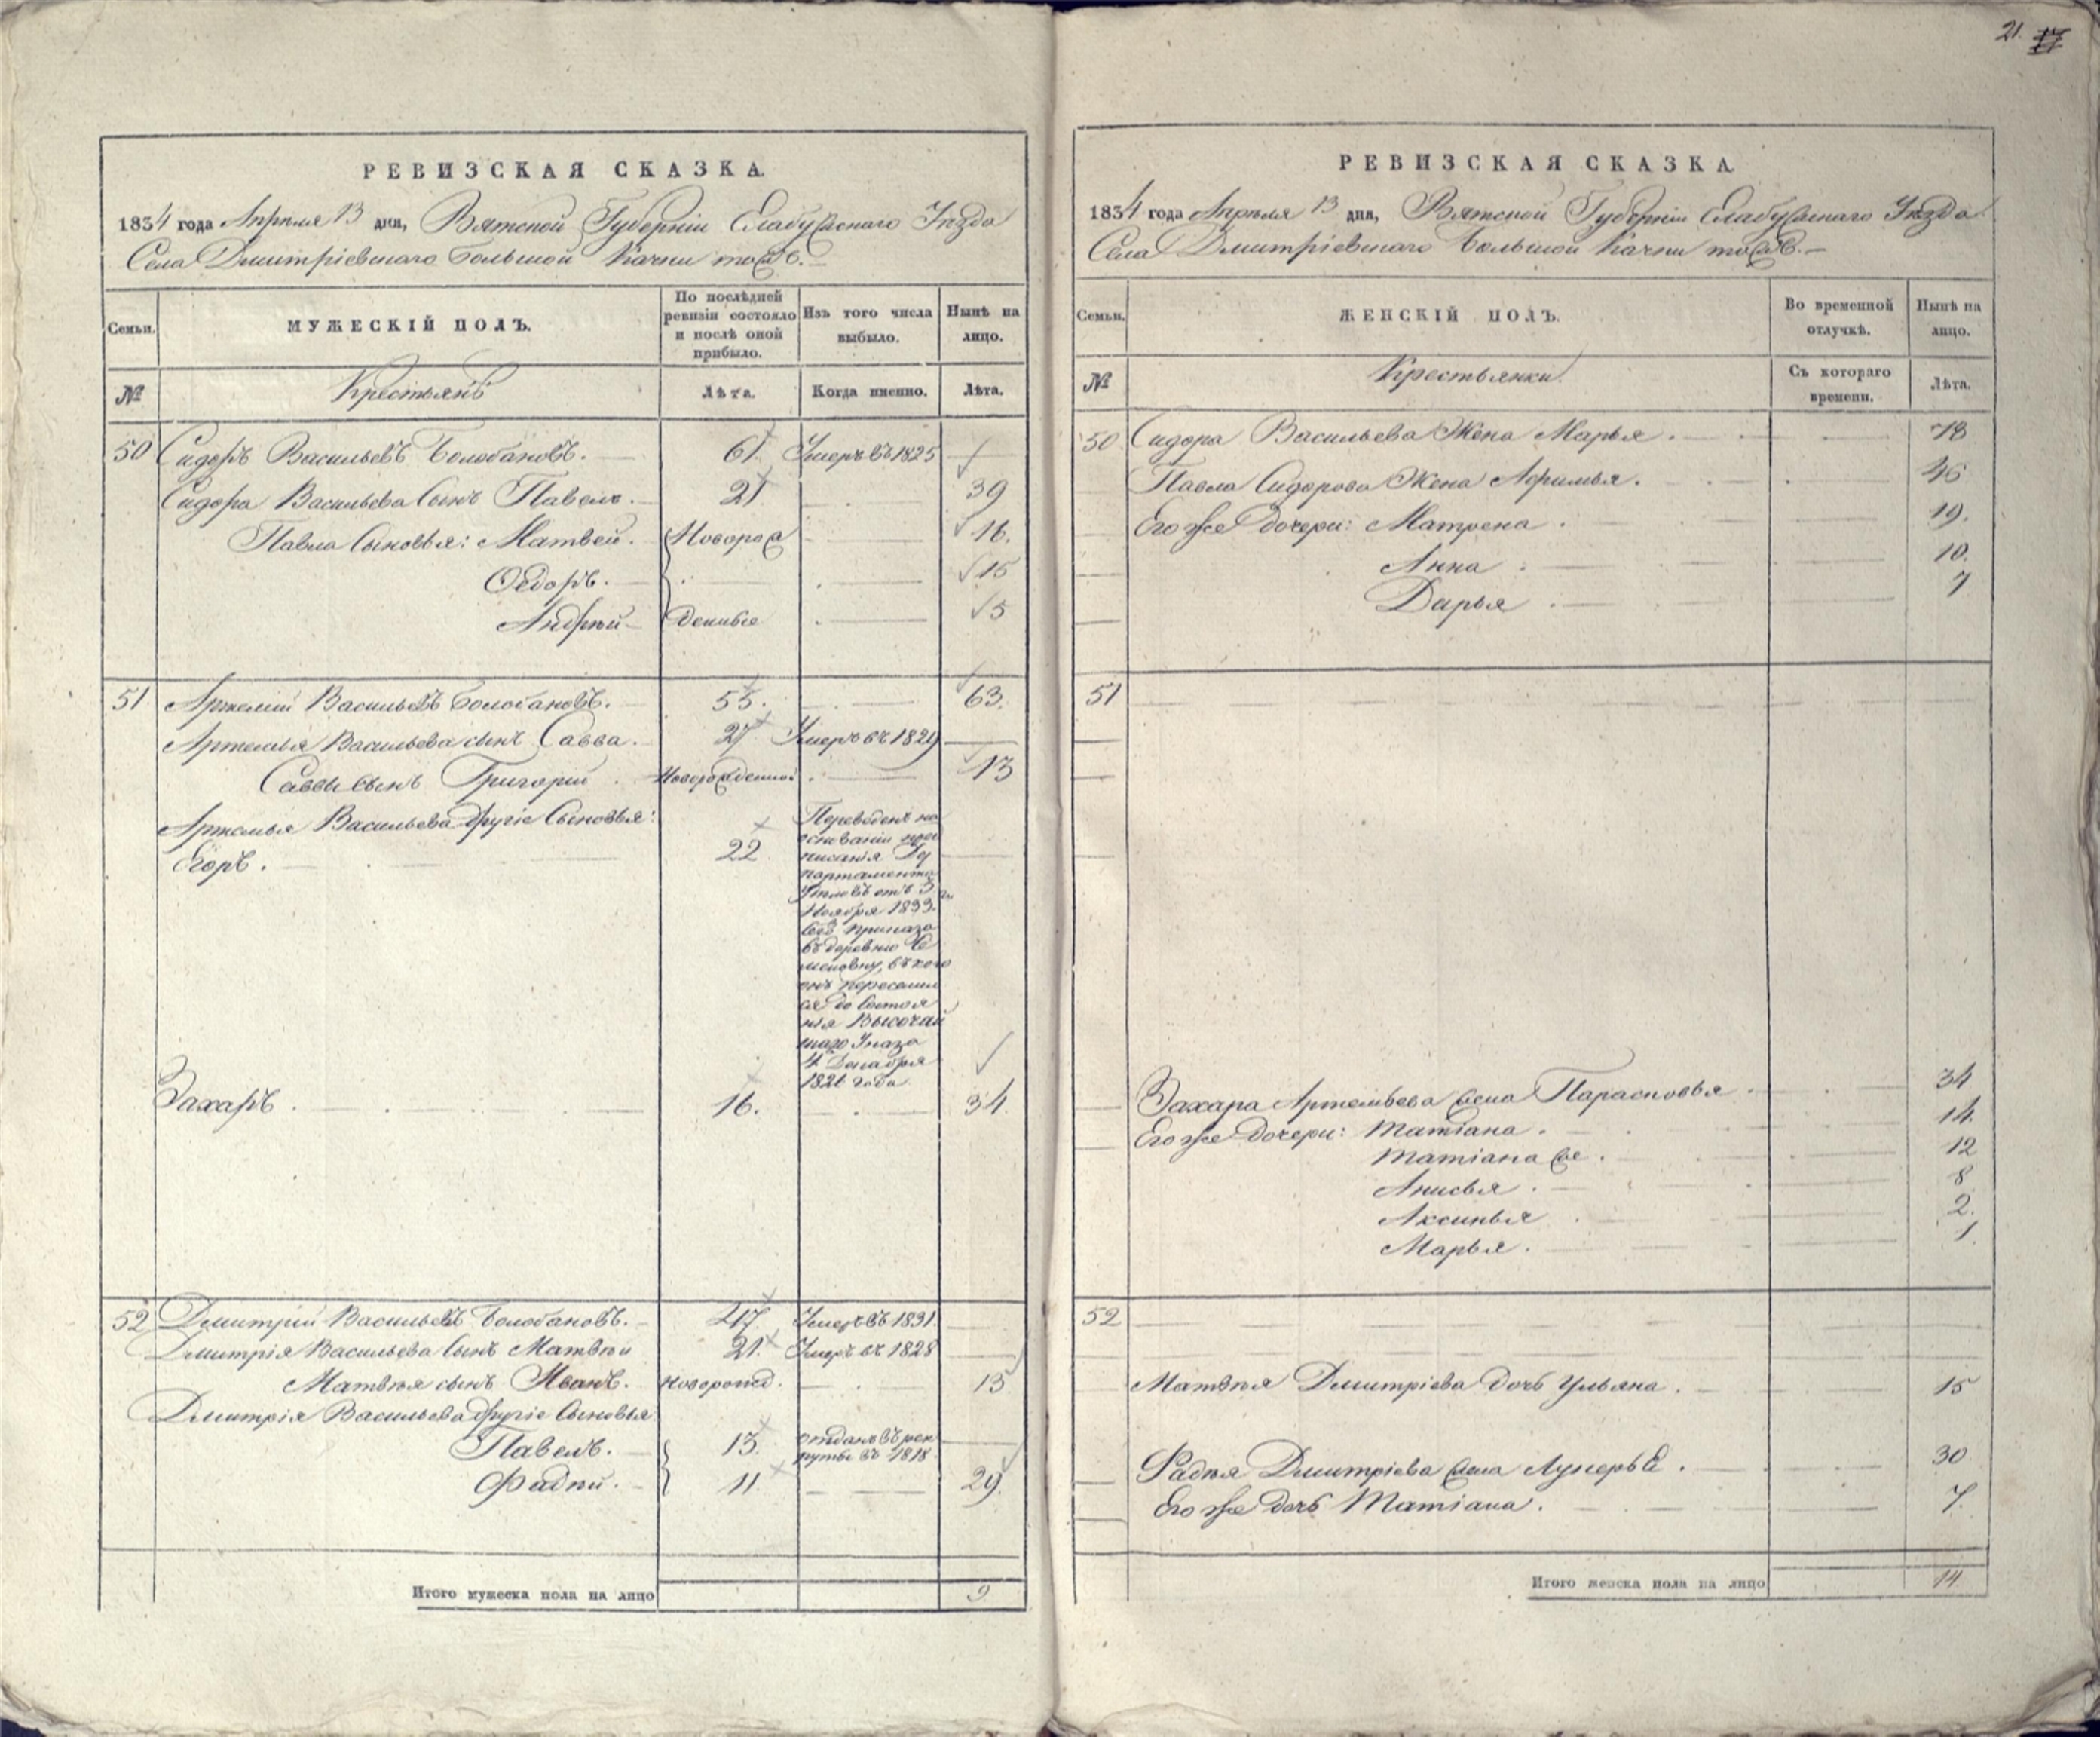 21. 17
РЕВИЗСКАЯ СКАЗКА.
1834 года Апреля 13 дня, Вятской Губерніи Елабужскаго Уѣзда
Села Дмитріевскаго Большой Качки тожъ.
Семьи.
МУЖЕСКІЙ ПОЛЪ.
По послѣдней ревизіи состояло и послѣ оной прибыло.
Изъ того числа выбыло.
Нынѣ на лицо.
№
Крестьянъ
Лѣта.
Когда именно.
Лѣта.
50 Сидоръ Васильевъ Болобановъ. 61. Умеръ въ 1825
Сидора Васильева Сынъ Павелъ. 21 39
Павла Сыновья: Матвей. Новорож 16.
Ѳедоръ. 15
Андрей денные 5
51 Артемій Васильевъ Болобановъ. 55. 63.
Артемья Васильева сынъ Савва. 27 Умеръ въ 1829
Саввы сынъ Григорій Новорожденной 13
Артемья Васильева другіе Сыновья:
Егоръ. 22
Переведенъ на
основаніи пред
писанія Де
партамента
Удѣловъ отъ 3
Ноября 1833.
сего приказа
въ деревню Се
меновку, въ кою
онъ переселил
ся до состоя
нія Высочай
шаго Указа
4 Декабря
1826 года
Захаръ. 16. 34.
52 Дмитрій Васильевъ Болобановъ. 47. Умеръ въ 1831.
Дмитрія Васильева Сынъ Матвѣй 21. Умеръ въ 1828
Матвѣя сынъ Иванъ. новорожд. 13
Дмитрія Васильева другіе Сыновья
Павелъ. 13. отданъ въ рек
руты въ 1818
Фадѣй. 11. 29.
Итого мужеска пола на лицо 9
РЕВИЗСКАЯ СКАЗКА.
1834 года Апрѣля 13 дня, Вятской Губерніи Елабужскаго Уѣзда
Села Дмитріевскаго Большой Качки тожъ.
Семьи.
ЖЕНСКІЙ ПОЛЪ.
Во временной отлучкѣ.
Нынѣ на лицо.
№
Крестьянки.
Съ котораго времени.
Лѣта.
50 Сидора Васильева Жена Марья. 78
Павла Сидорова Жена Афимья. 46
Его же дочери: Матрена. 19.
Анна 10.
Дарья 7
51
Захара Артемьева жена Парасковья 34
Его же дочери: Татіана. 14.
Татіана же. 12
Анисья. 8
Аксинья 2.
Марья. 1.
52
Матвѣя Дмитріева дочь Ульяна. 15
Фадѣя Дмитріева жена Лукерья. 30
Его же дочь Татіана. 7.
Итого женска пола на лицо 14